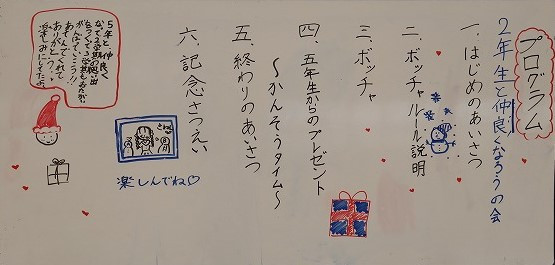 プログラム
2年生と仲良くなろうの会
一、はじめのあいさつ
二、ボッチャルール説明
三、ボッチャ
四、五年生からのプレゼント
〜かんそうタイム〜
五、終わりのあいさつ
六、記念さつえい
楽しんでね♡
5年と仲良く
がんばっていこう!!
あそんでくれて
ありがとう
楽しみにしてたよ